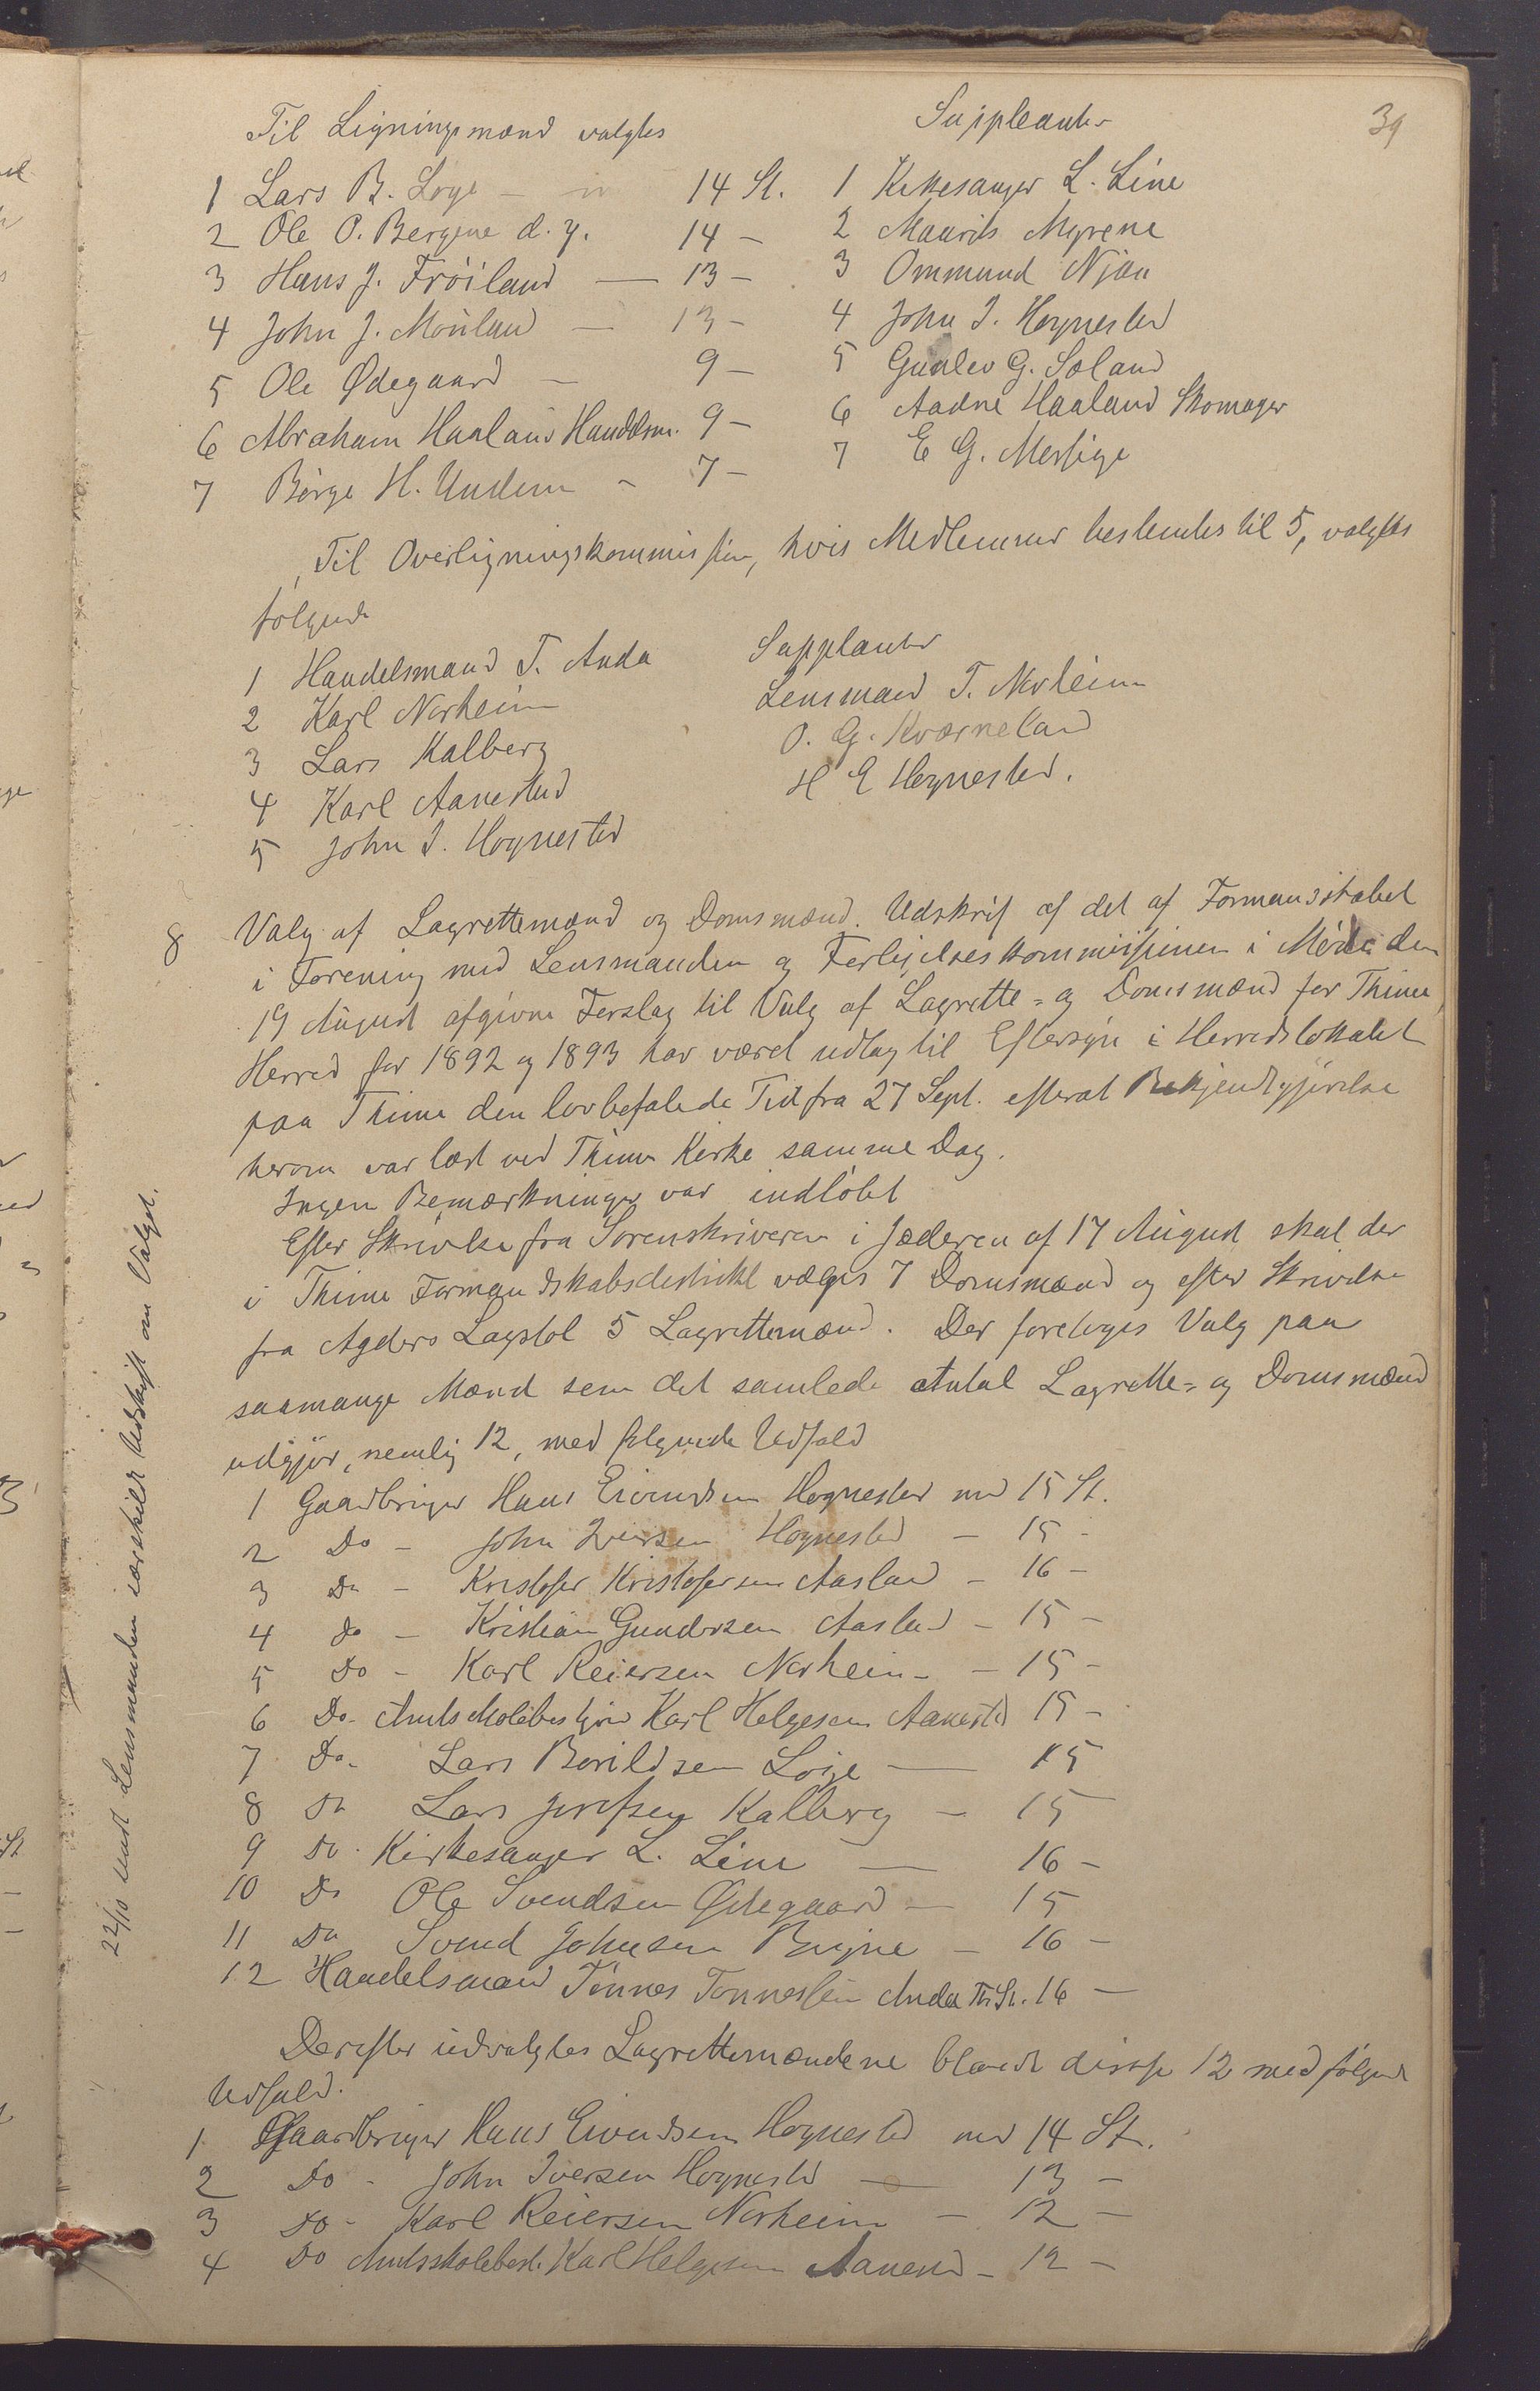 39
Til Ligningsmænd valgtes
Suppleanter
1 Lars B. Loge — 14 St.
2 Ole O. Bergene d. y. 14 —
3 Hans J. Fröiland — 13 —
4 John J. Mauland — 13 —
5 Ole Ødegaard — 9 —
6 Abraham Haaland Handelsm. 9 —
7 Börge H. Undem - 7 —
1 Kirkesanger L. Line
2 Maurits Myrene
3 Ommund Njaa
4 John I. Hognested
5 Gunlev G. Soland
6 Aadne Haaland Skomager
7 E G. Messige
Til Overligningskommission, hvis Medlemmer bestemtes til 5, valgtes
følgende
1 Handelsmand T. Anda
2 Karl Norheim
3 Lars Kalberg
4 Karl Aanestad
5 John I. Hognested
Supplanter
Lensmand T. Norheim
O. G. Kværneland
H E Hognested.
8 Valg af Lagrettemænd og Domsmænd. Udskrif af det af Formandskabet
i Forening med Lensmanden og Forligelseskommissionen i Möde den
19 August afgivne Forslag til Valg af Lagrette- og Domsmænd for Thime
Herred for 1892 og 1893 har været udlag til Eftersyn i Herredslokalet
paa Thime den lovbefalede Tid fra 27 Sept. efterat Bekjendtgjörelse
herom var læst ved Thime Kirke samme Dag.
Ingen Bemærkninger var indlöbet
Efter Skrivelse fra Sorenskriveren i Jæderen af 17 August skal der
i Thime Formandskabsdistrikt vælges 7 Domsmænd og efter Skrivelse
fra Agders Lagstol 5 Lagrettemænd. Der foretoges Valg paa
saamange Mænd som det samlede Antal Lagrette- og Domsmænd
udgjör, nemlig 12, med følgende Udfald
1 Gaardbruger Hans Eivendsen Hognested med 15 St.
2 Do - John Iversen Hognested — 15 -
3 Do - Kristofer Kristofersen Aasland — 16 -
4 Do - Kristian Gundersen Aasland — 15 -
5 Do - Karl Reiersen Norheim - — 15 -
6 Do - Amtsskolebestyrer Karl Helgesen Aanestad 15 -
7 Do - Lars Borildsen Loge — 15
8 Do Lars Josefsen Kalberg — 15
9 Do - Kirkesanger L. Line — 16 -
10 Do Ole Svendsen Ødegaard — 15
11 Do Svend Johnsen Bryne — 16 -
12 Handelsmand Tönnes Tonnessen Anda Th. St. 16 —
Derefter udvalgtes Lagrettemændene blandt disse 12 med følgende
Udfald.
1 Gaardbruger Hans Eivendsen Hognested med 14 St.
2 Do - John Iversen Hognested — 13 -
3 Do - Karl Reiersen Norheim — 12 -
4 Do Amtsskolebest. Karl Helgesen Aanestad — 12 -
22/10 sendt Lensmanden særskilt Udskrift om Valget.